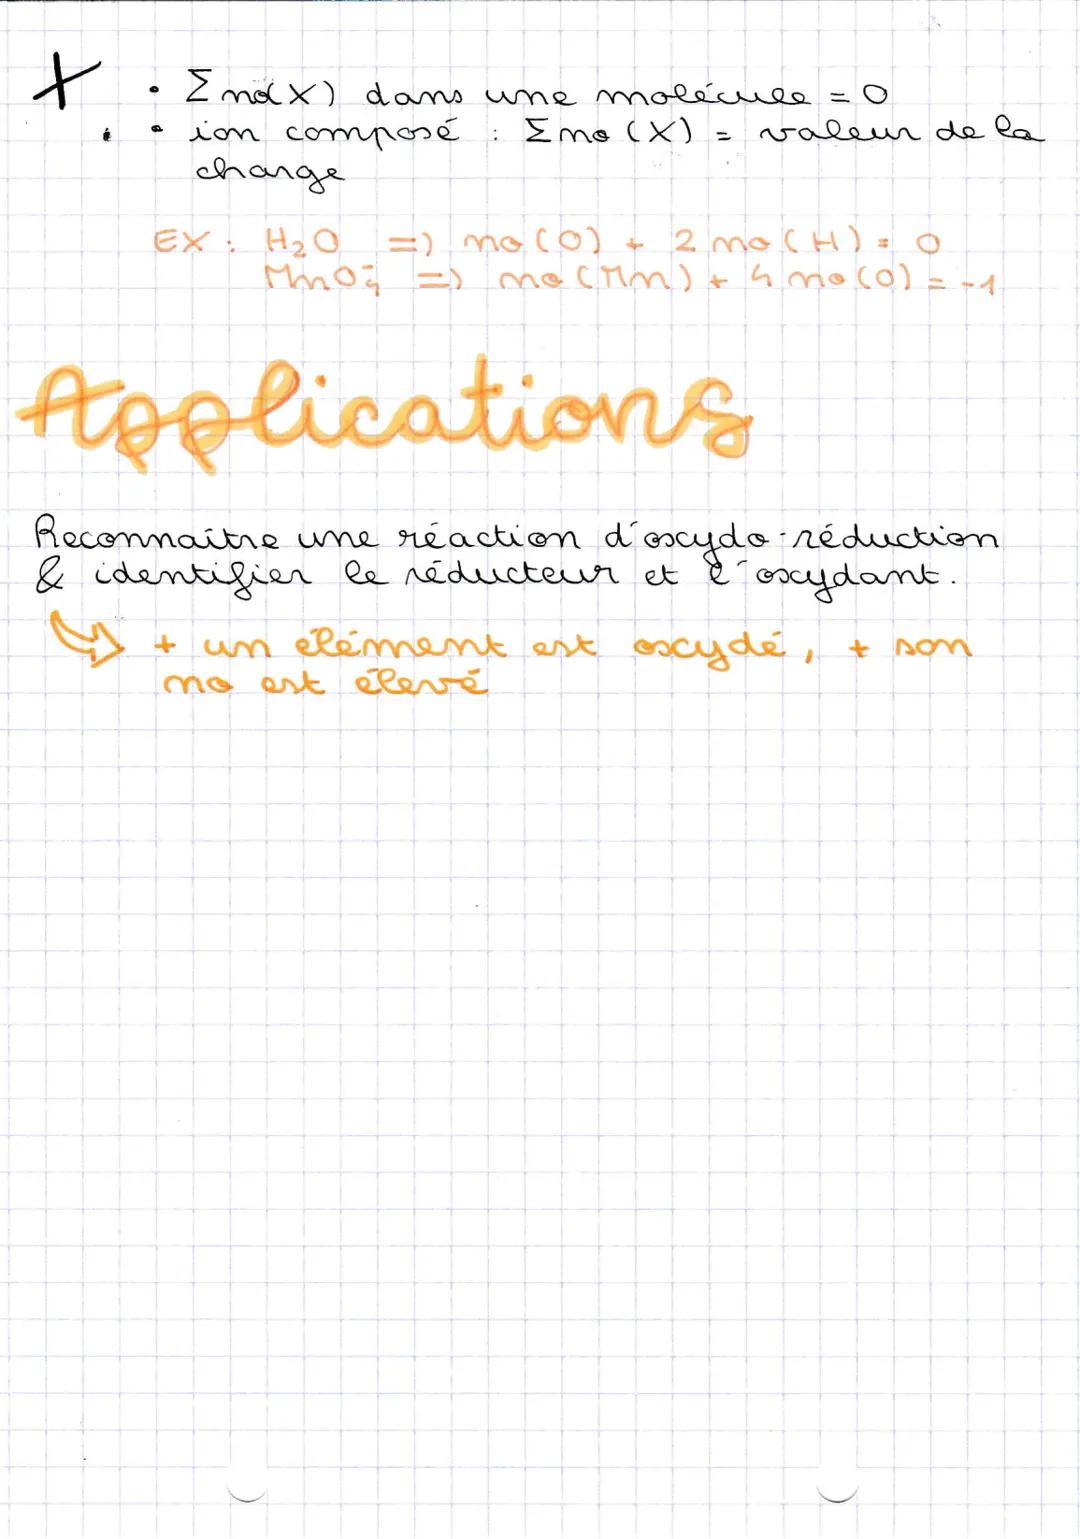 • Σ no(X) dans une molécule = 0
• ion composé : Σ no (X) = valeur de la
charge
EX : H₂O => no(O) + 2 no(H) = 0
MnO₄⁻ => no(Mn) + 4 no(O) = -1
Applications
Reconnaître une réaction d'oxydo-réduction
& identifier le réducteur et l'oxydant.
+ un élément est oxydé, + son
no est élevé